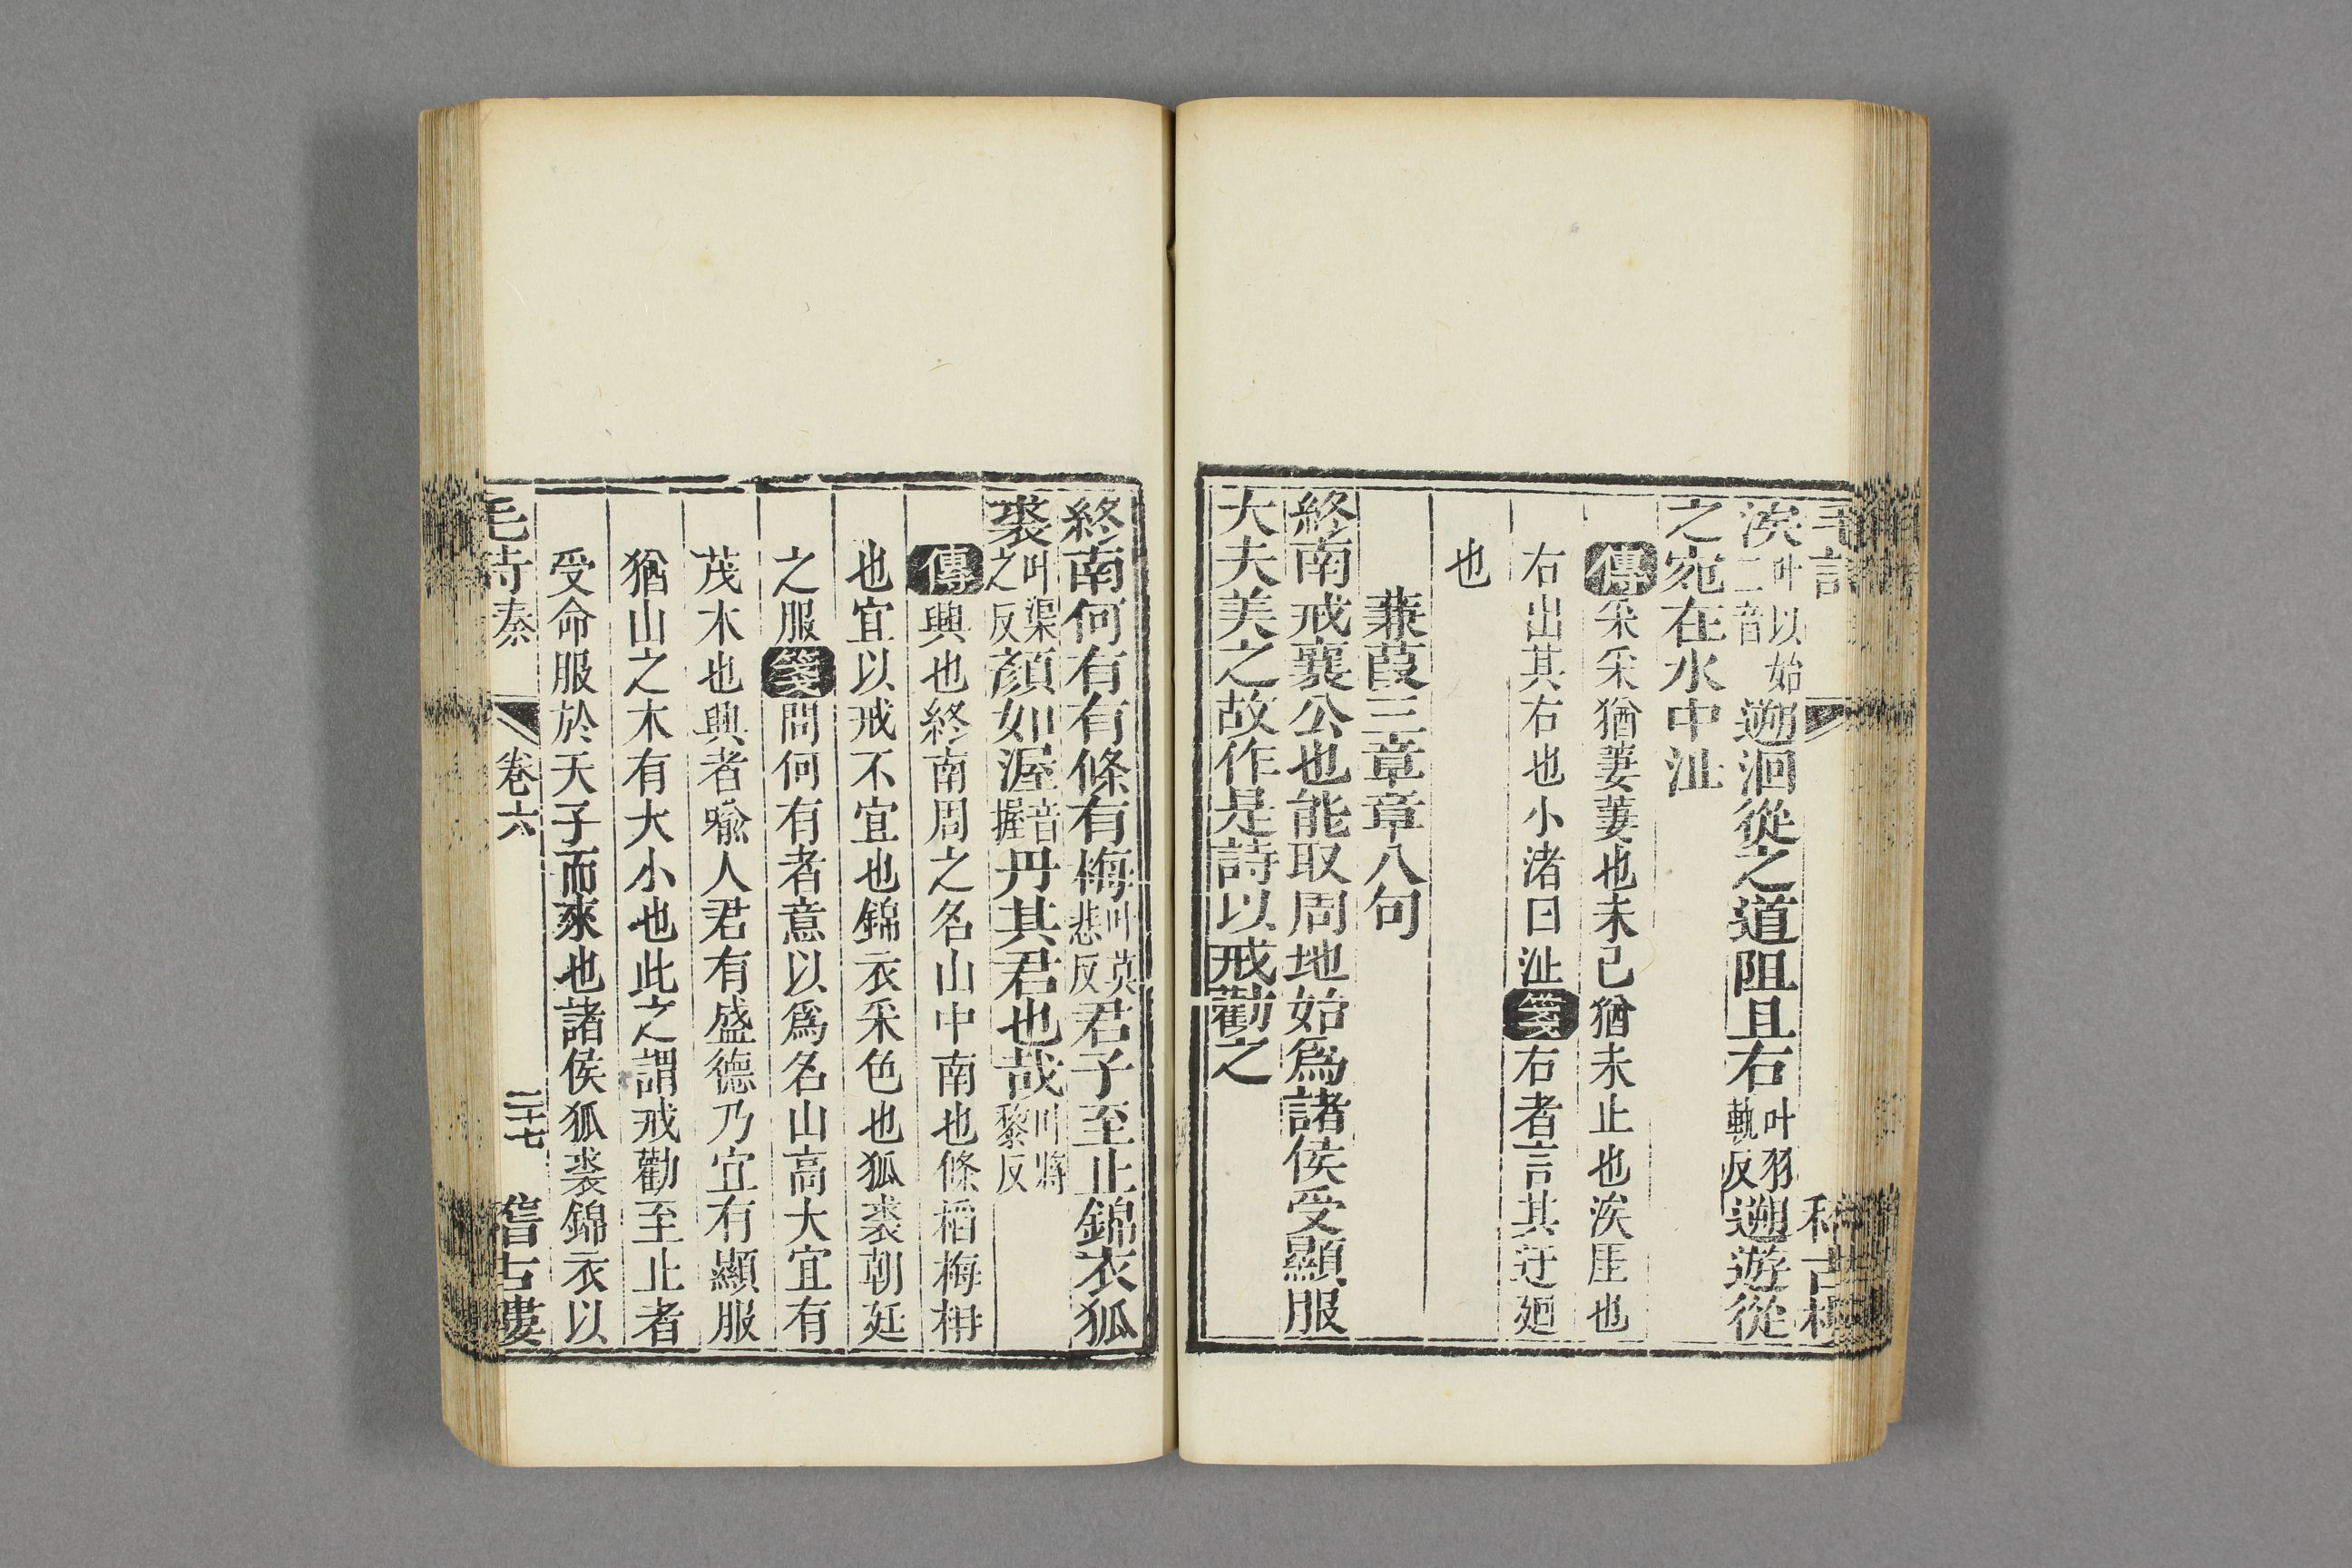 涘叶以始二音遡洄從之道阻且右叶羽軌反遡遊從
之宛在水中沚
傳采采猶萋萋也未已猶未止也涘厓也
右出其右也小渚曰沚箋右者言其迂廻
也
蒹葭三章章八句
終南戒襄公也能取周地始爲諸侯受顯服
大夫美之故作是詩以戒勸之
終南何有有條有梅叶莫悲反君子至止錦衣狐
裘叶渠之反顏如渥音握丹其君也哉叶將黎反
傳興也終南周之名山中南也條槄梅枏
也宜以戒不宜也錦衣采色也狐裘朝廷
之服箋問何有者意以爲名山高大宜有
茂木也興者喻人君有盛德乃宜有顯服
猶山之木有大小也此之謂戒勸至止者
受命服於天子而來也諸侯狐裘錦衣以
毛詩秦 卷六 二十七 稽古樓